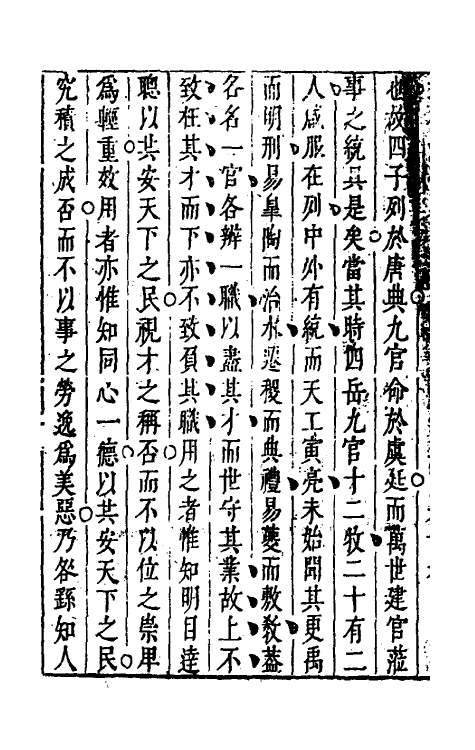 也故四子列於唐典九官命於虞廷而萬世建官蒞
事之統具是矣當其時四岳九官十二牧二十有二
人咸服在列中外有統而天工寅亮未始聞其更禹
而明刑易皐陶而治水悲稷而典禮易夔而敷教葢
名名一官各辨一職以盡其才而世守其業故上不
致枉其才而下亦不致負其職用之者惟知明目達
聰以共安天下之民視才之稱否而不以位之崇卑
爲輕重效用者亦惟知同心一德以共安天下之民
究積之成否而不以事之勞逸爲美惡乃咎繇知人